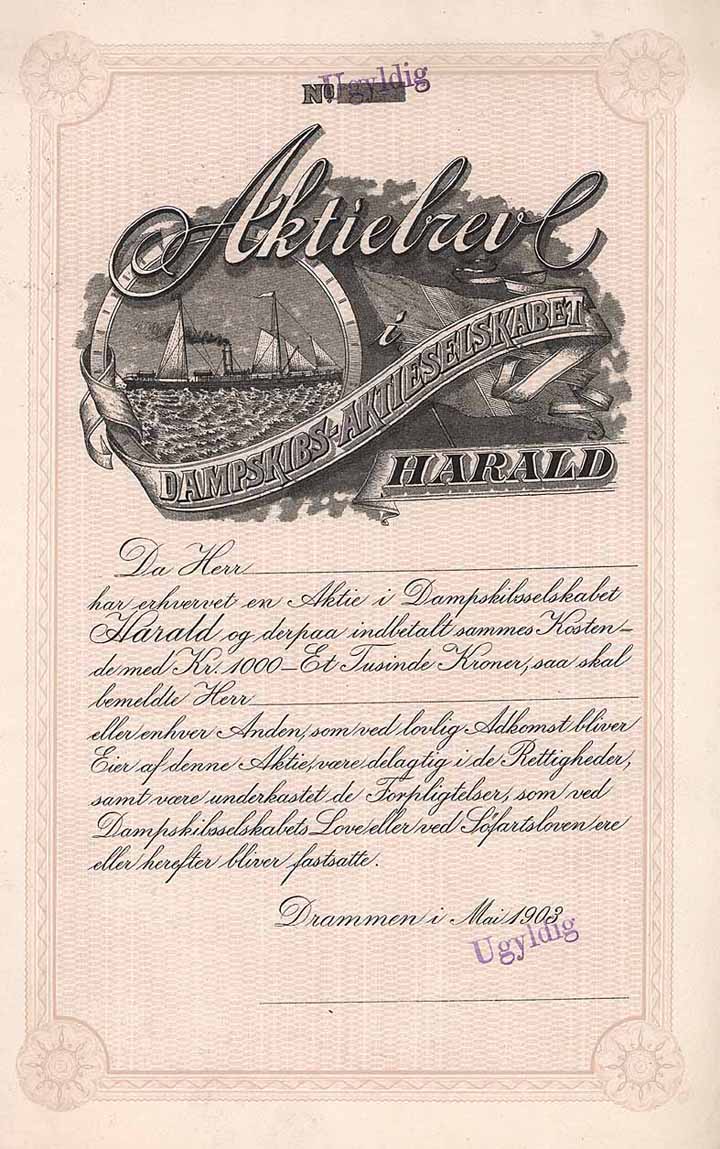 No Ugyldig
Aktiebrev
i
DAMPSKIBS-AKTIESELSKABET
HARALD
Da Herr
har erhvervet en Aktie i Dampskibsselskabet
Harald og derpaa indbetalt sammes Kosten-
de med Kr. 1000 – Et Tusinde Kroner, saa skal
bemeldte Herr
eller enhver Anden, som ved lovlig Adkomst bliver
Eier af denne Aktie, være delagtig i de Rettigheder,
samt være underkastet de Forpligtelser, som ved
Dampskibsselskabets Love eller ved Söfartsloven ere
eller herefter bliver fastsatte.
Drammen i Mai 1903
Ugyldig